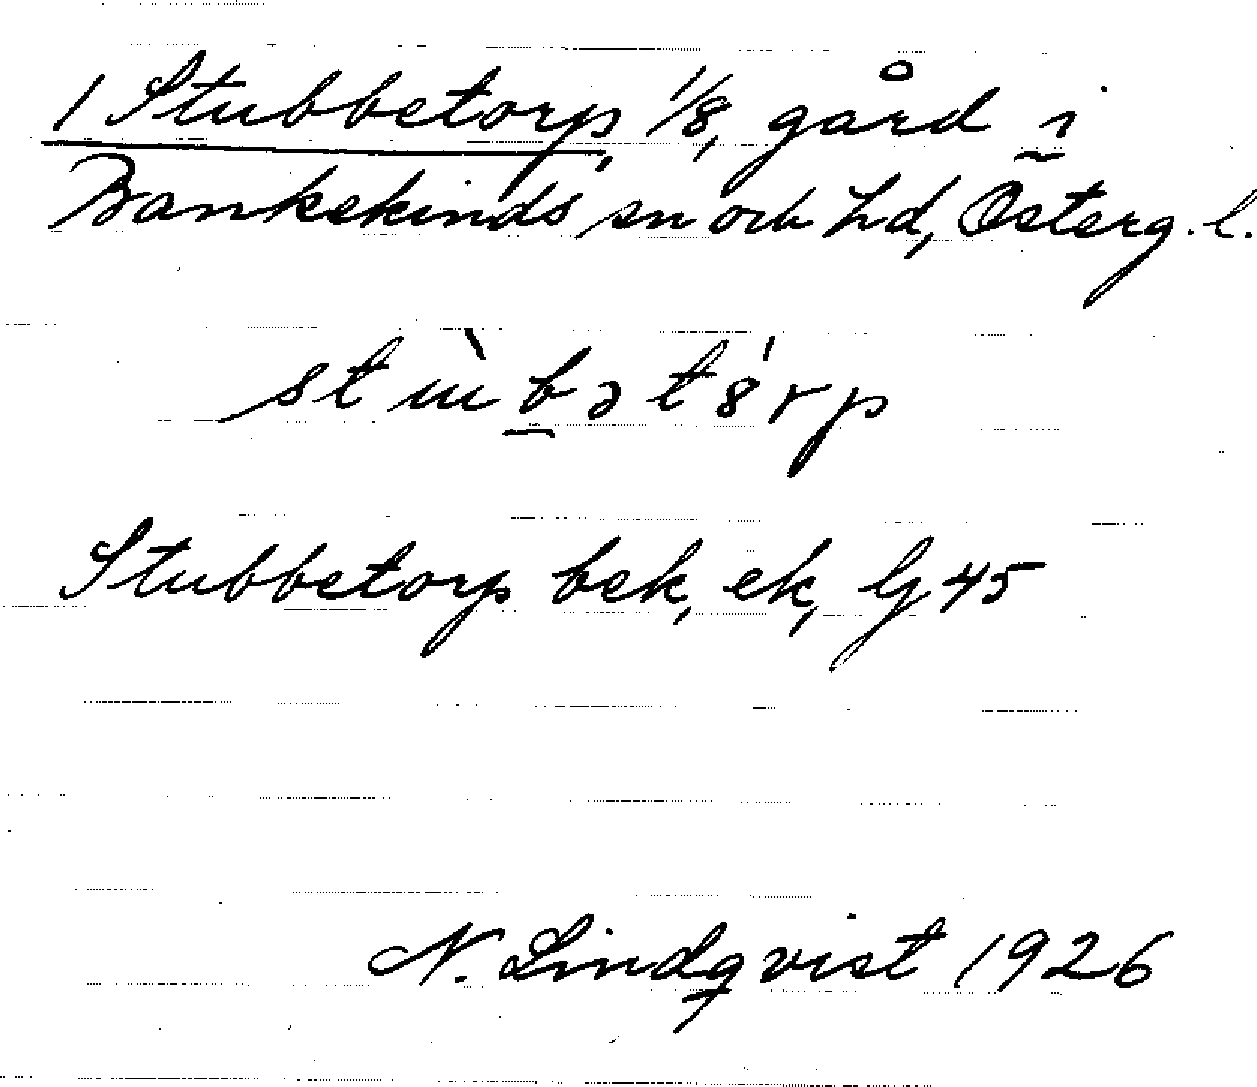 1 Stubbetorp, 1/8, gård i
Bankekinds sn och hd, Österg. l.
stùbǝtó̤rp
Stubbetorp bek, ek, Gj 45
N. Lindqvist 1926